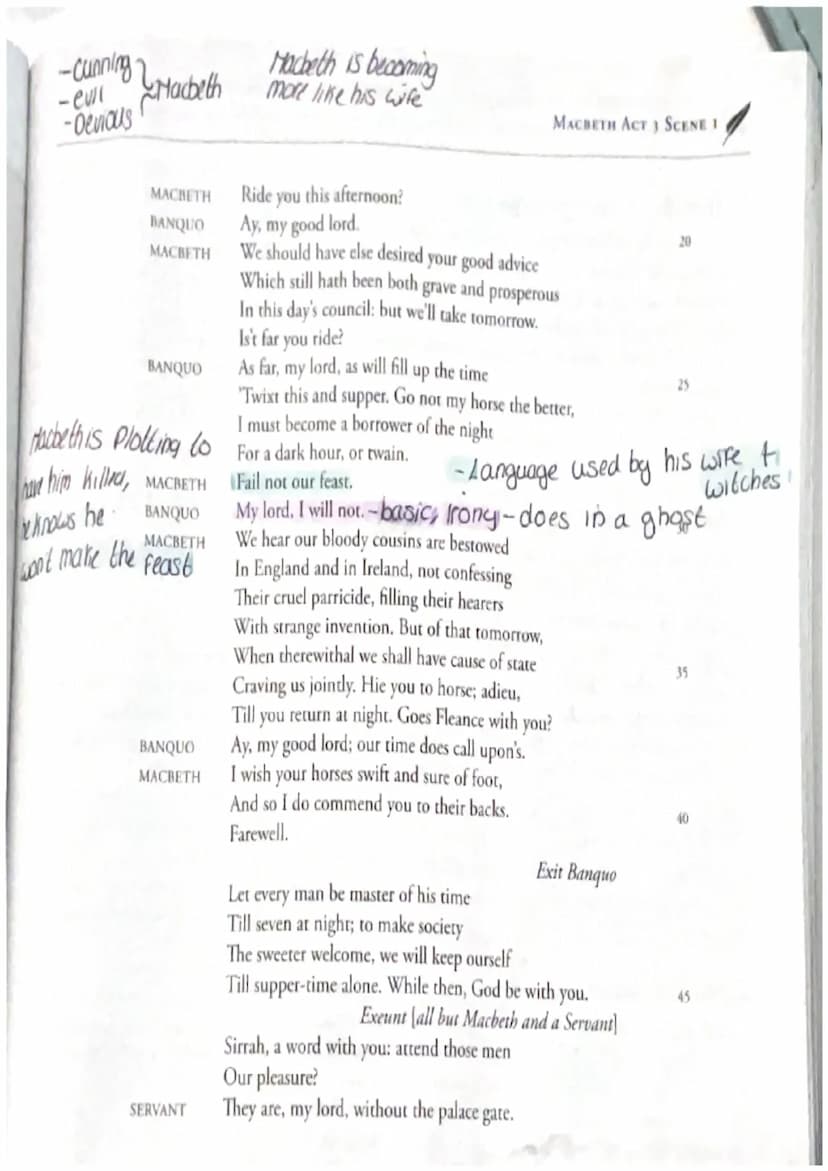 -cunning
-evil
-Devious
Macbeth
Macbeth is becoming
more like his wife
MACBETH ACT 3 SCENE 1
MACBETH Ride you this afternoon?
BANQUO Ay, my good lord. 20
MACBETH We should have else desired your good advice
Which still hath been both grave and prosperous
In this day's council: but we'll take tomorrow.
Is't far you ride?
BANQUO As far, my lord, as will fill up the time 25
'Twixt this and supper. Go not my horse the better,
I must become a borrower of the night
For a dark hour, or twain.
MACBETH Fail not our feast.
BANQUO My lord, I will not.
MACBETH We hear our bloody cousins are bestowed
In England and in Ireland, not confessing
Their cruel parricide, filling their hearers
With strange invention. But of that tomorrow,
When therewithal we shall have cause of state 35
Craving us jointly. Hie you to horse; adieu,
Till you return at night. Goes Fleance with you?
BANQUO Ay, my good lord; our time does call upon's.
MACBETH I wish your horses swift and sure of foot,
And so I do commend you to their backs. 40
Farewell.
Exit Banquo
Let every man be master of his time
Till seven at night; to make society
The sweeter welcome, we will keep ourself
Till supper-time alone. While then, God be with you. 45
Exeunt [all but Macbeth and a Servant]
Sirrah, a word with you: attend those men
Our pleasure?
SERVANT They are, my lord, without the palace gate.
Macbeth is Plotting to
have him killed,
he knows he
wont make the feast
-Language used by his wife +
witches
-basic, Irony-does in a ghost